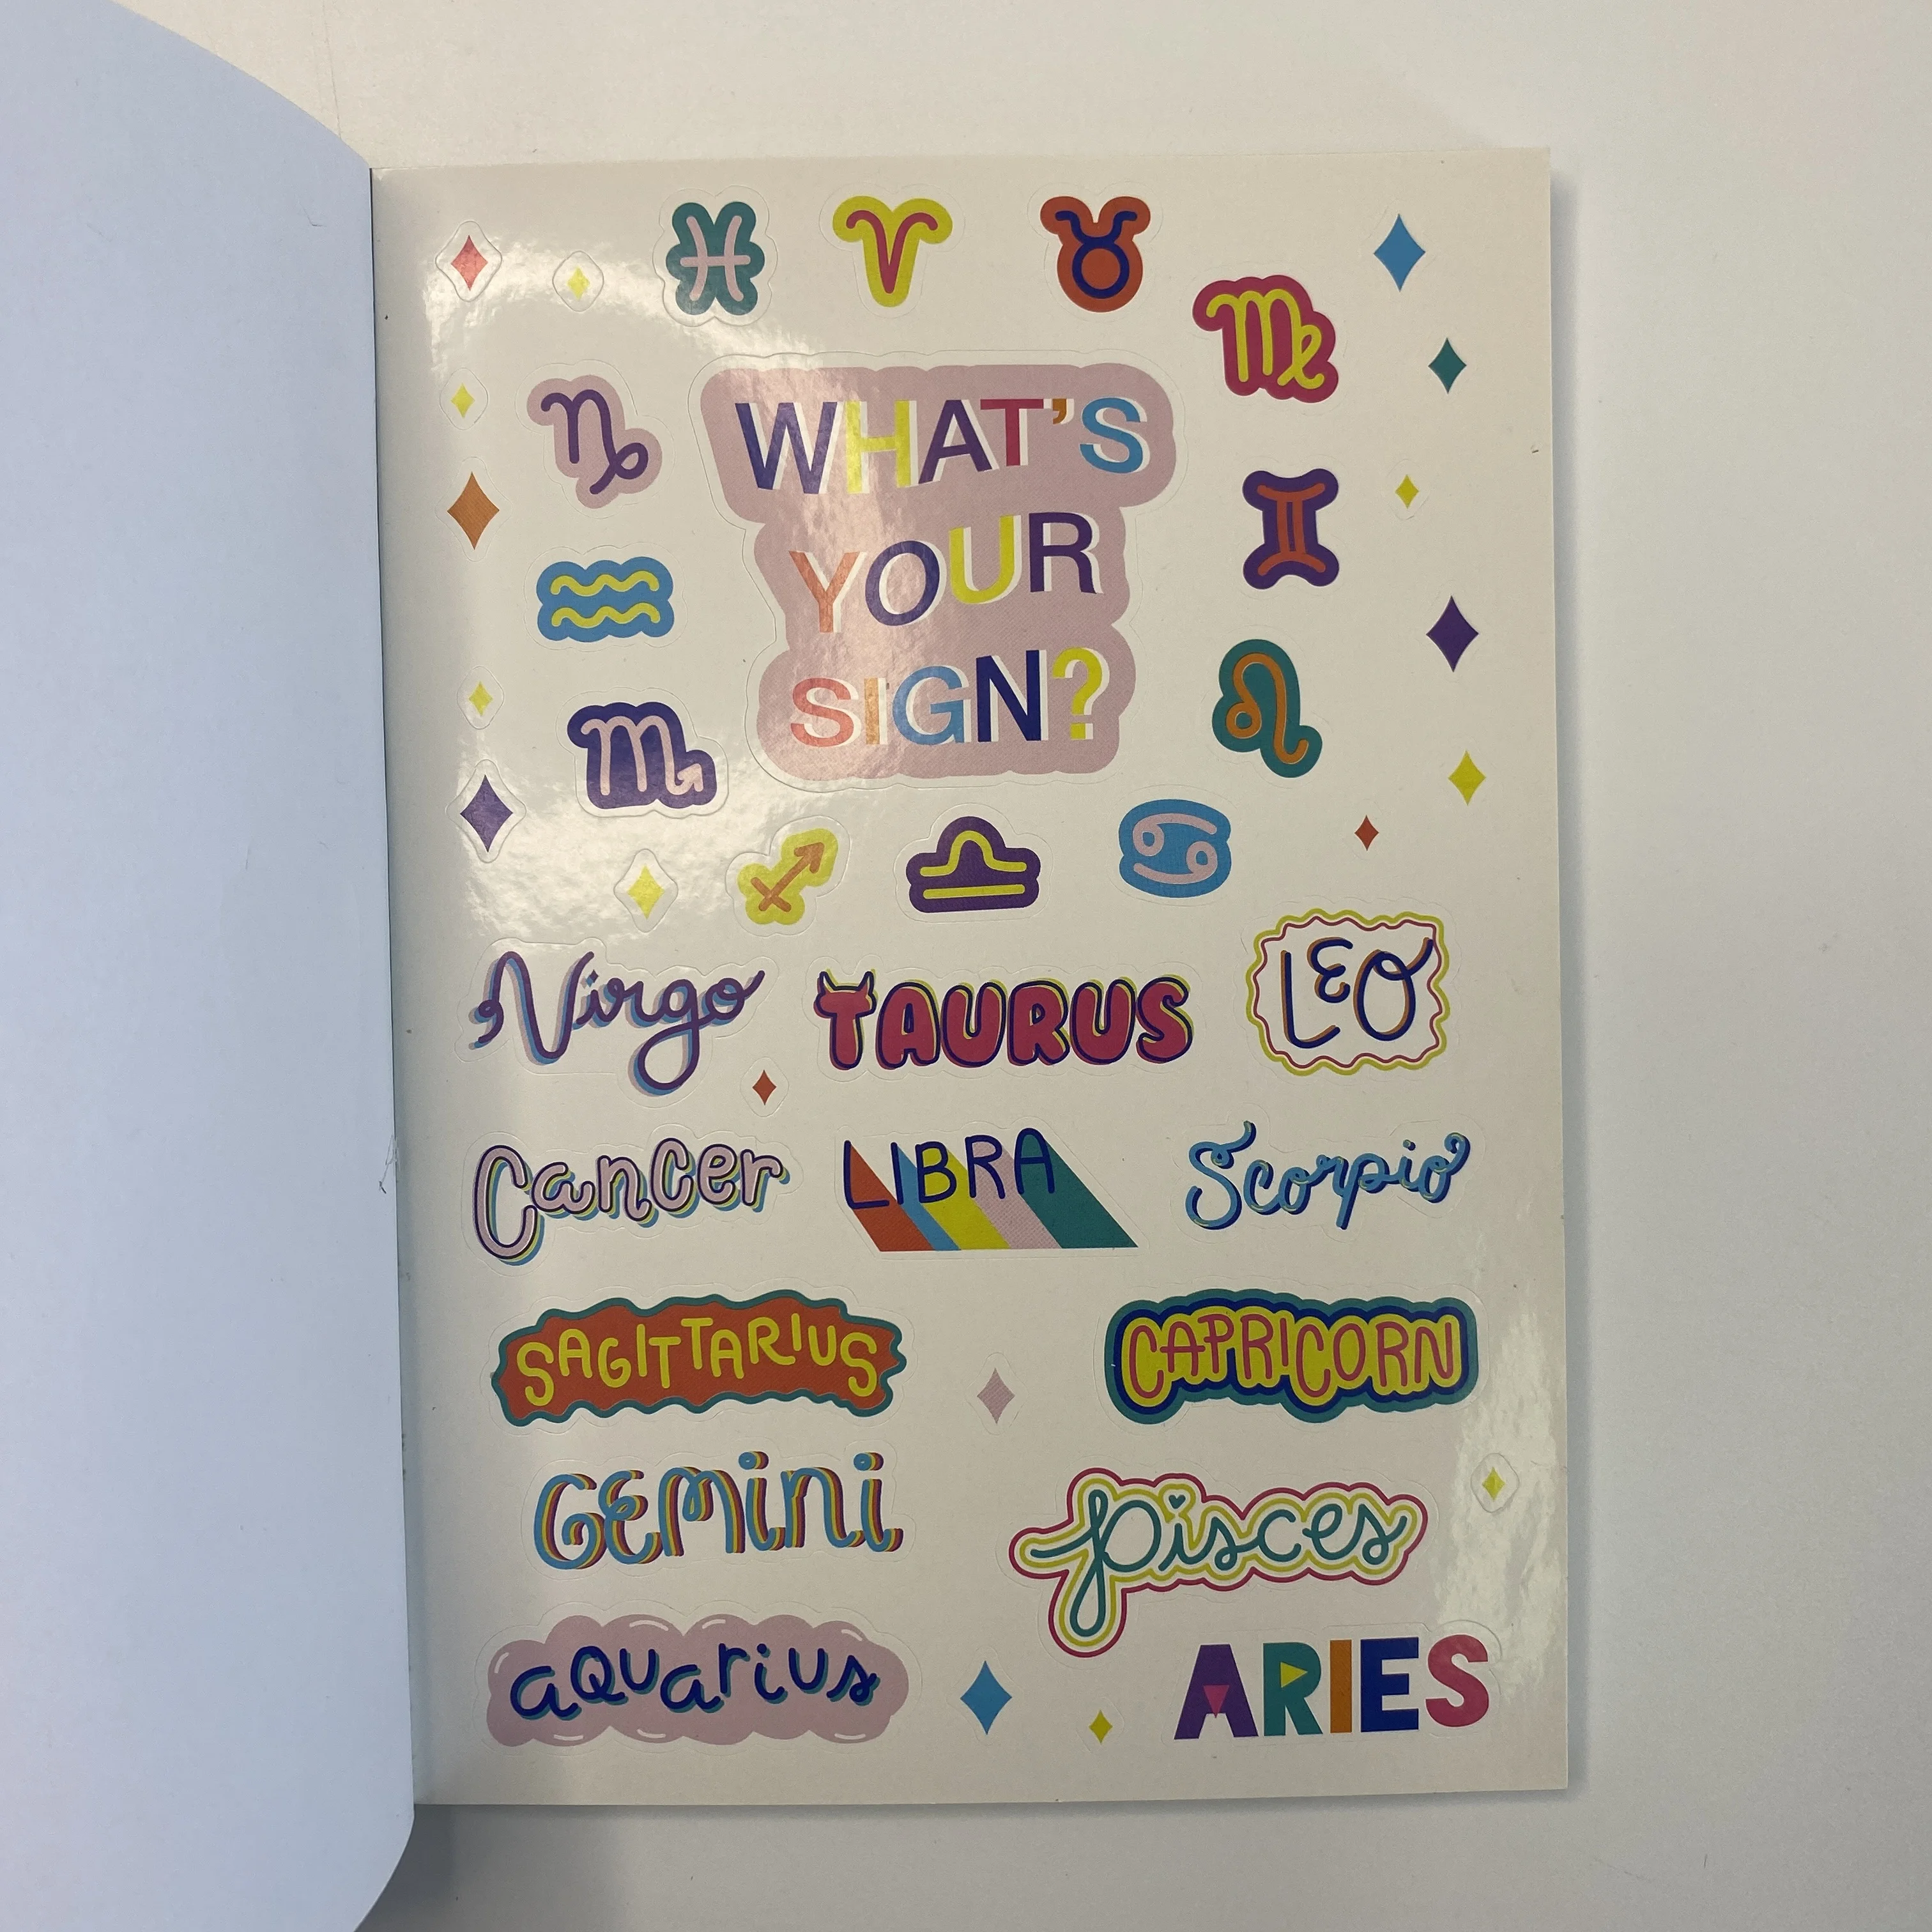 WHAT'S
YOUR
SIGN?
Virgo TAURUS LEO
Cancer LIBRA Scorpio
SAGITTARIUS CAPRICORN
GEMini Pisces
aQuarius ARIES